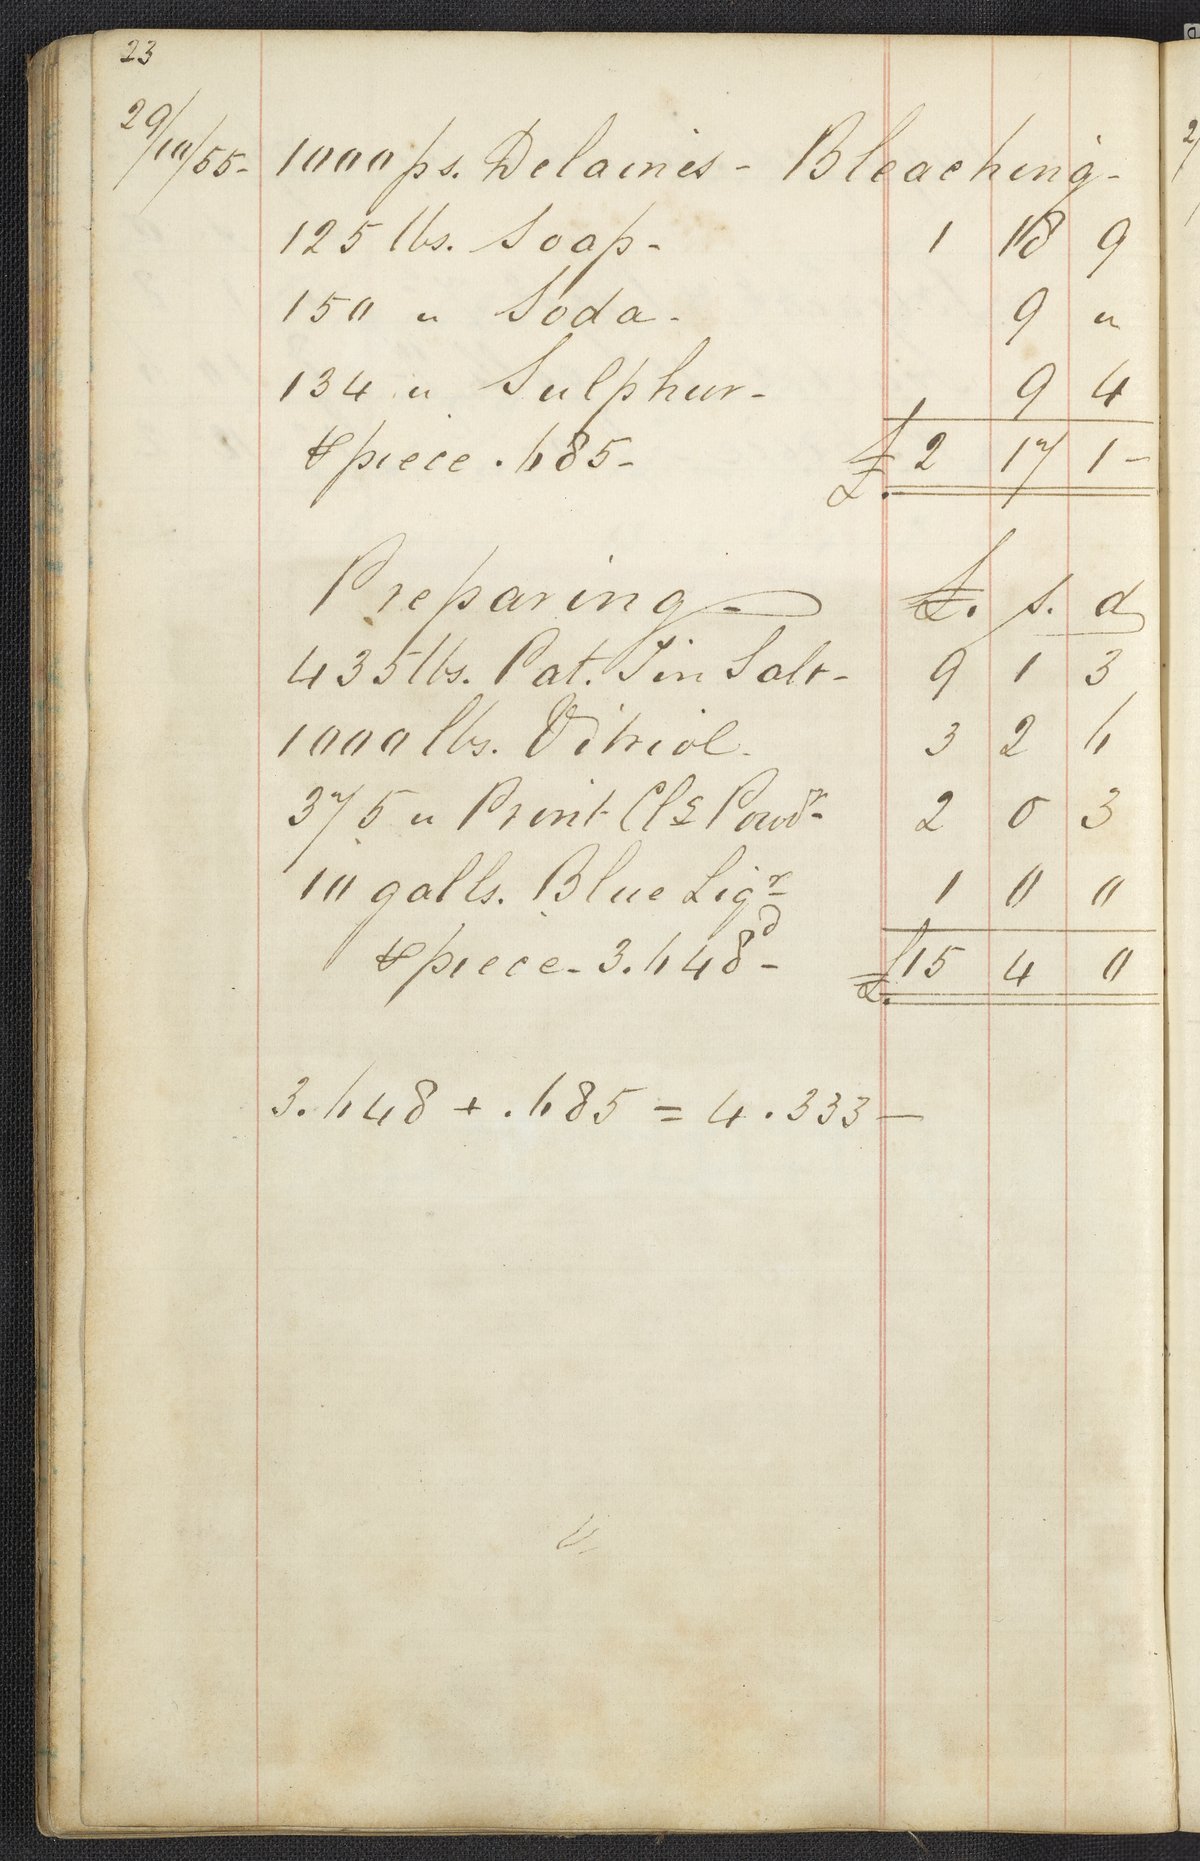 23
29/10/55 - 1000 ps. Delaines - Bleaching -
125 lbs. Soap - 1 18 9
150 " Soda - 9 "
134 " Sulphur - 9 4
⅌ piece .685 - £2 17 1 -
Preparing - £. s. d
435 lbs. Pat. Tin Salt - 9 1 3
1000 lbs. Vitriol - 3 2 6
375 " Print Clg Powdr - 2 0 3
10 galls. Blue Liqr 1 0 0
⅌ piece - 3.648d - £15 4 0
3.648 + .685 = 4.333 -